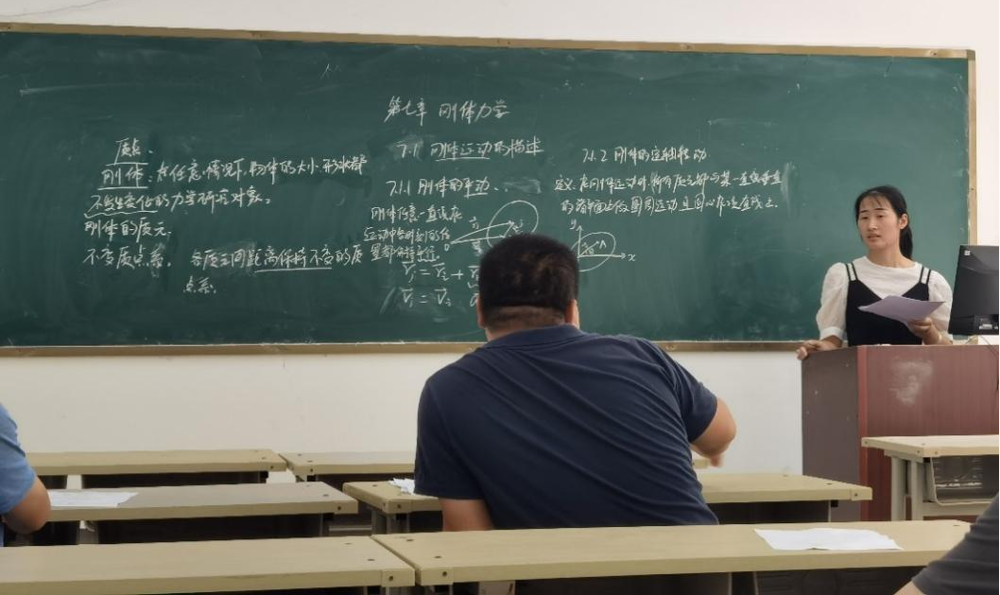 第七章 刚体力学
质点.
刚体: 在任意情况下, 物体的大小、形状都
不发生变化的力学研究对象。
刚体的质元.
不变质点系。 各质元间距离保持不变的质
点系.
7.1 刚体运动的描述
7.1.1 刚体的平动.
刚体任意一直线在
运动中各时刻的位
置都保持平行.
7.1.2 刚体的定轴转动
定义: 在刚体运动时, 所有质元都与某一直线垂直
的诸平面上做圆周运动且圆心在该直线上.
y
A
x